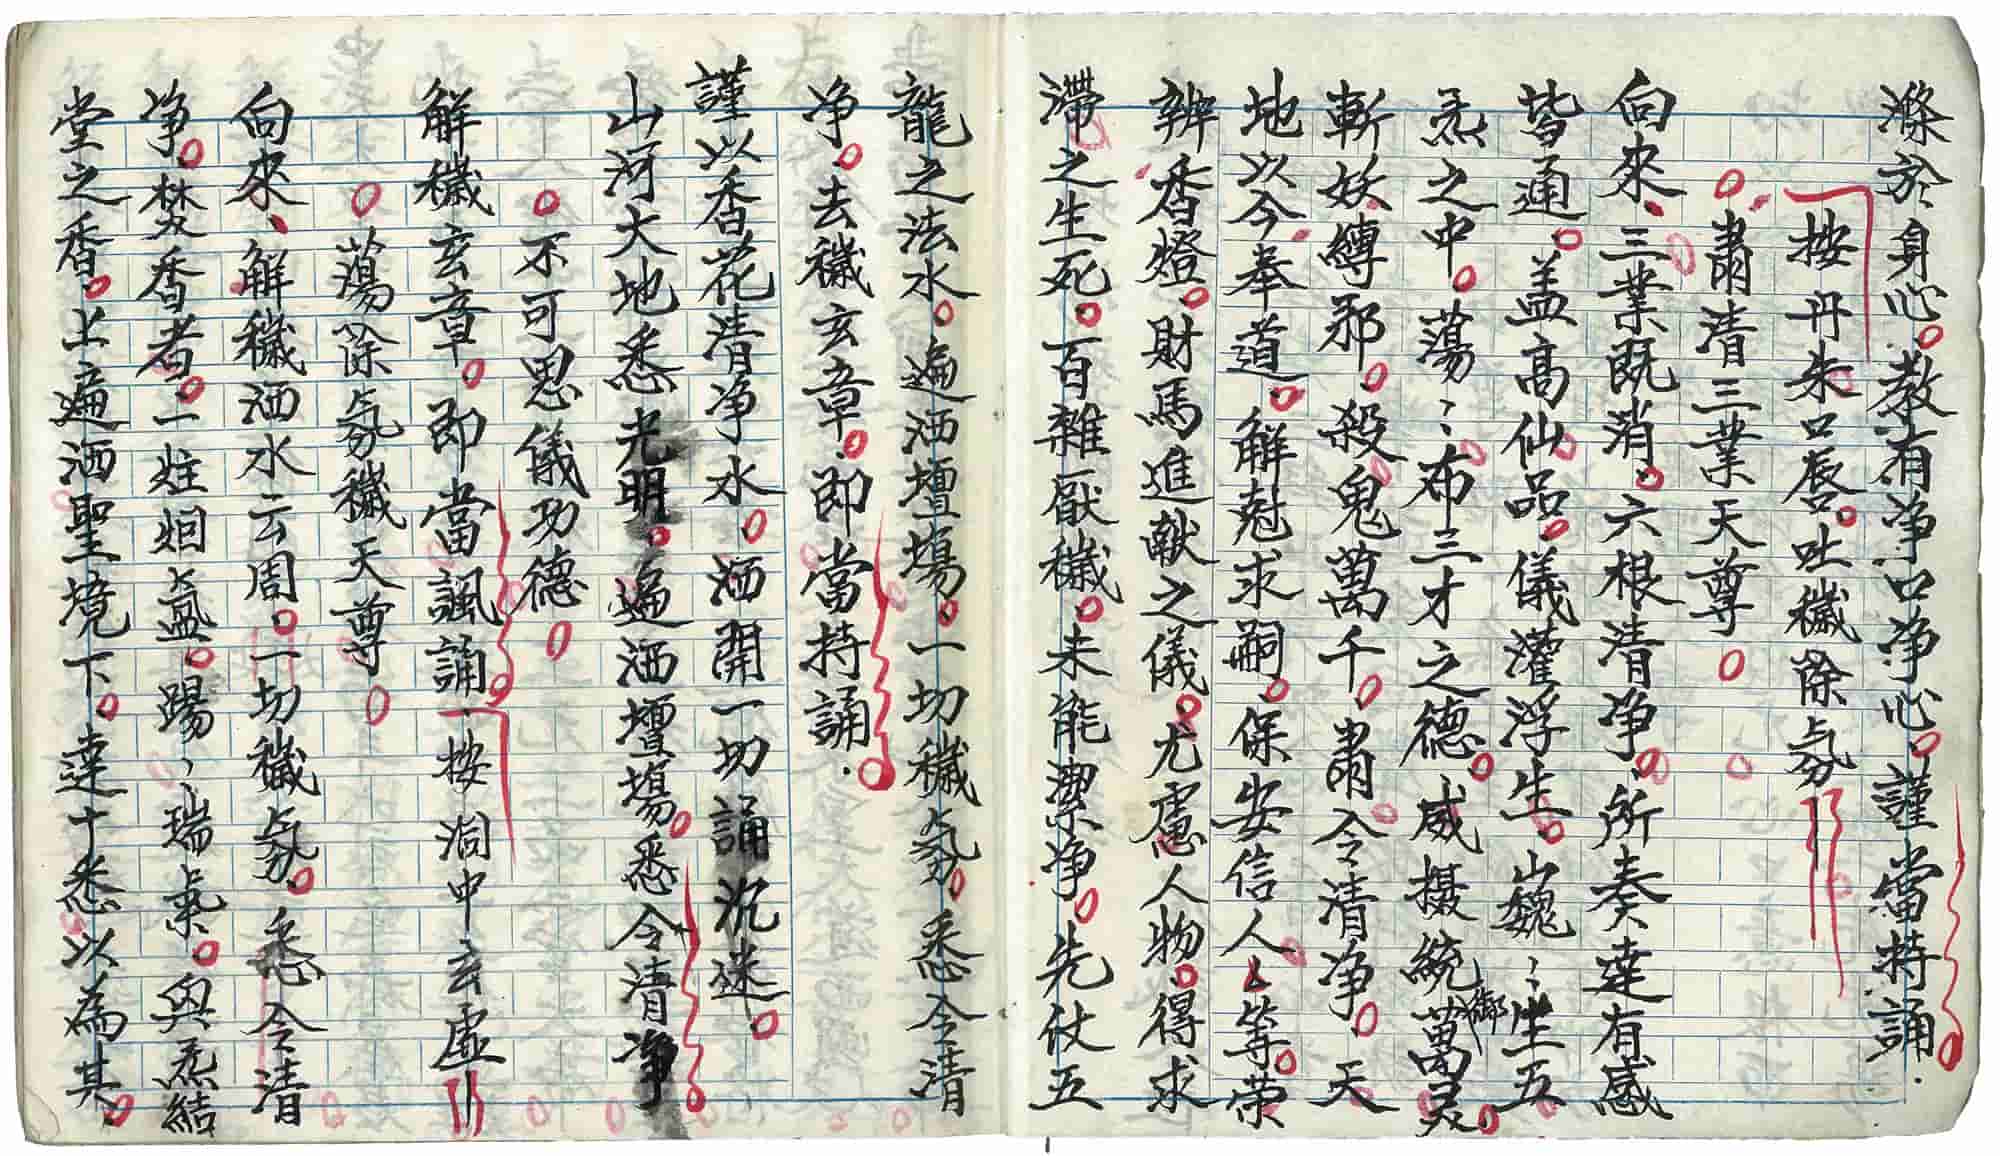 滌於身心。教有净口净心。謹當持誦.
按丹朱口唇。吐穢除氛
。肅清三業天尊。
向來、三業既消。六根清净。所奏達有感
皆通。盖高仙品。儀灌浮生。山巍〻坐御五
炁之中。蕩〻布三才之德。威摄統萬灵。
斬妖縛邪。殺鬼萬千。肅令清净。天
地以今奉道。解愆求嗣。保安信人厶等。荣
辨香燈。財馬進献之儀。尤慮人物。得求
滯之生死。百雜厭穢。未能潔净。先仗五
龍之法水。遍洒壇場。一切穢氛。悉令清
净。去穢玄章。即當持誦.
謹以香花清净水。洒開一切誦沉迷。
山河大地悉光明。遍洒壇場。悉令清净
。不可思儀功德。
解穢玄章。即當諷誦。按洞中玄虛
。蕩除氛穢天尊。
向來、解穢洒水云周。一切穢氛。悉令清
净。焚香者。一炷烟氳。賜〻瑞氣。與炁結
堂之香。上遍洒聖境下。達十悉以為其。